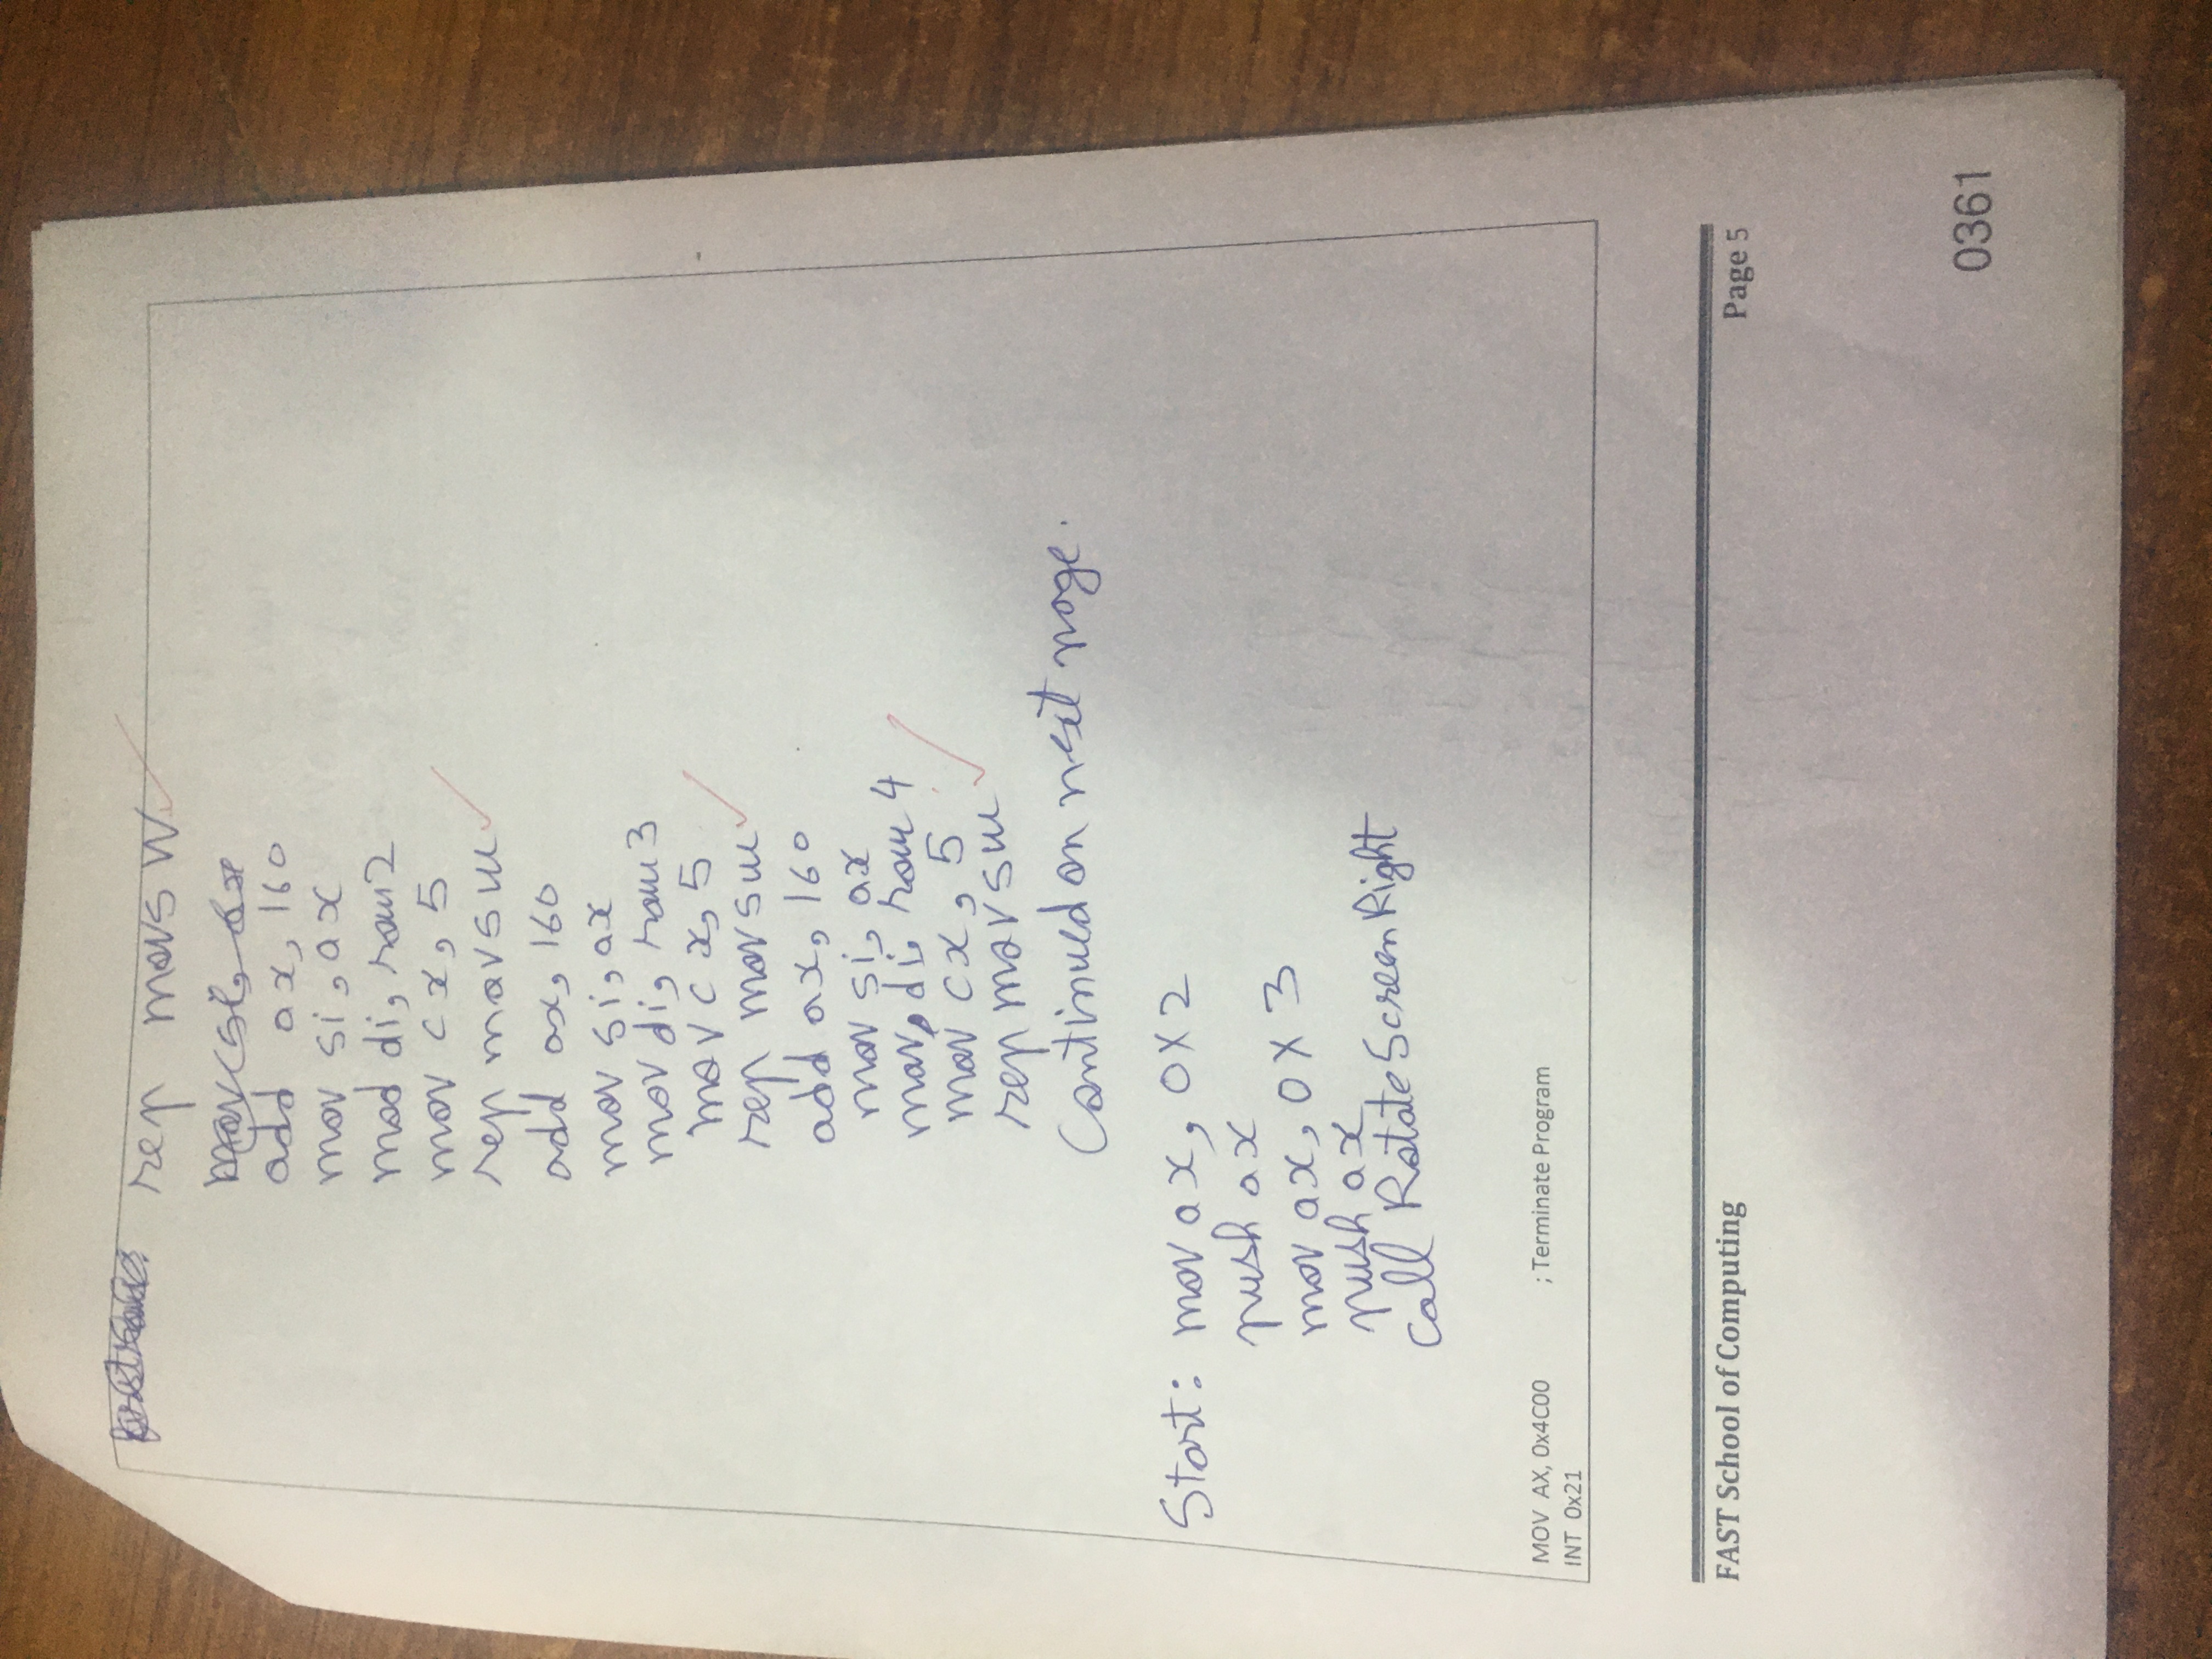 rep movsw
mov si, ax
add ax, 160
mov si, ax
mod di, row2
mov cx, 5
rep movsw
add ax, 160
mov si, ax
mov di, row3
mov cx, 5
rep movsw
add ax, 160
mov si, ax
mov, di, row4
mov cx, 5
rep movsw
Continued on next page.
Start: mov ax, 0X2
push ax
mov ax, 0X3
push ax
call RotateScreenRight
MOV AX, 0x4C00 ; Terminate Program
INT 0x21
FAST School of Computing Page 5
0361